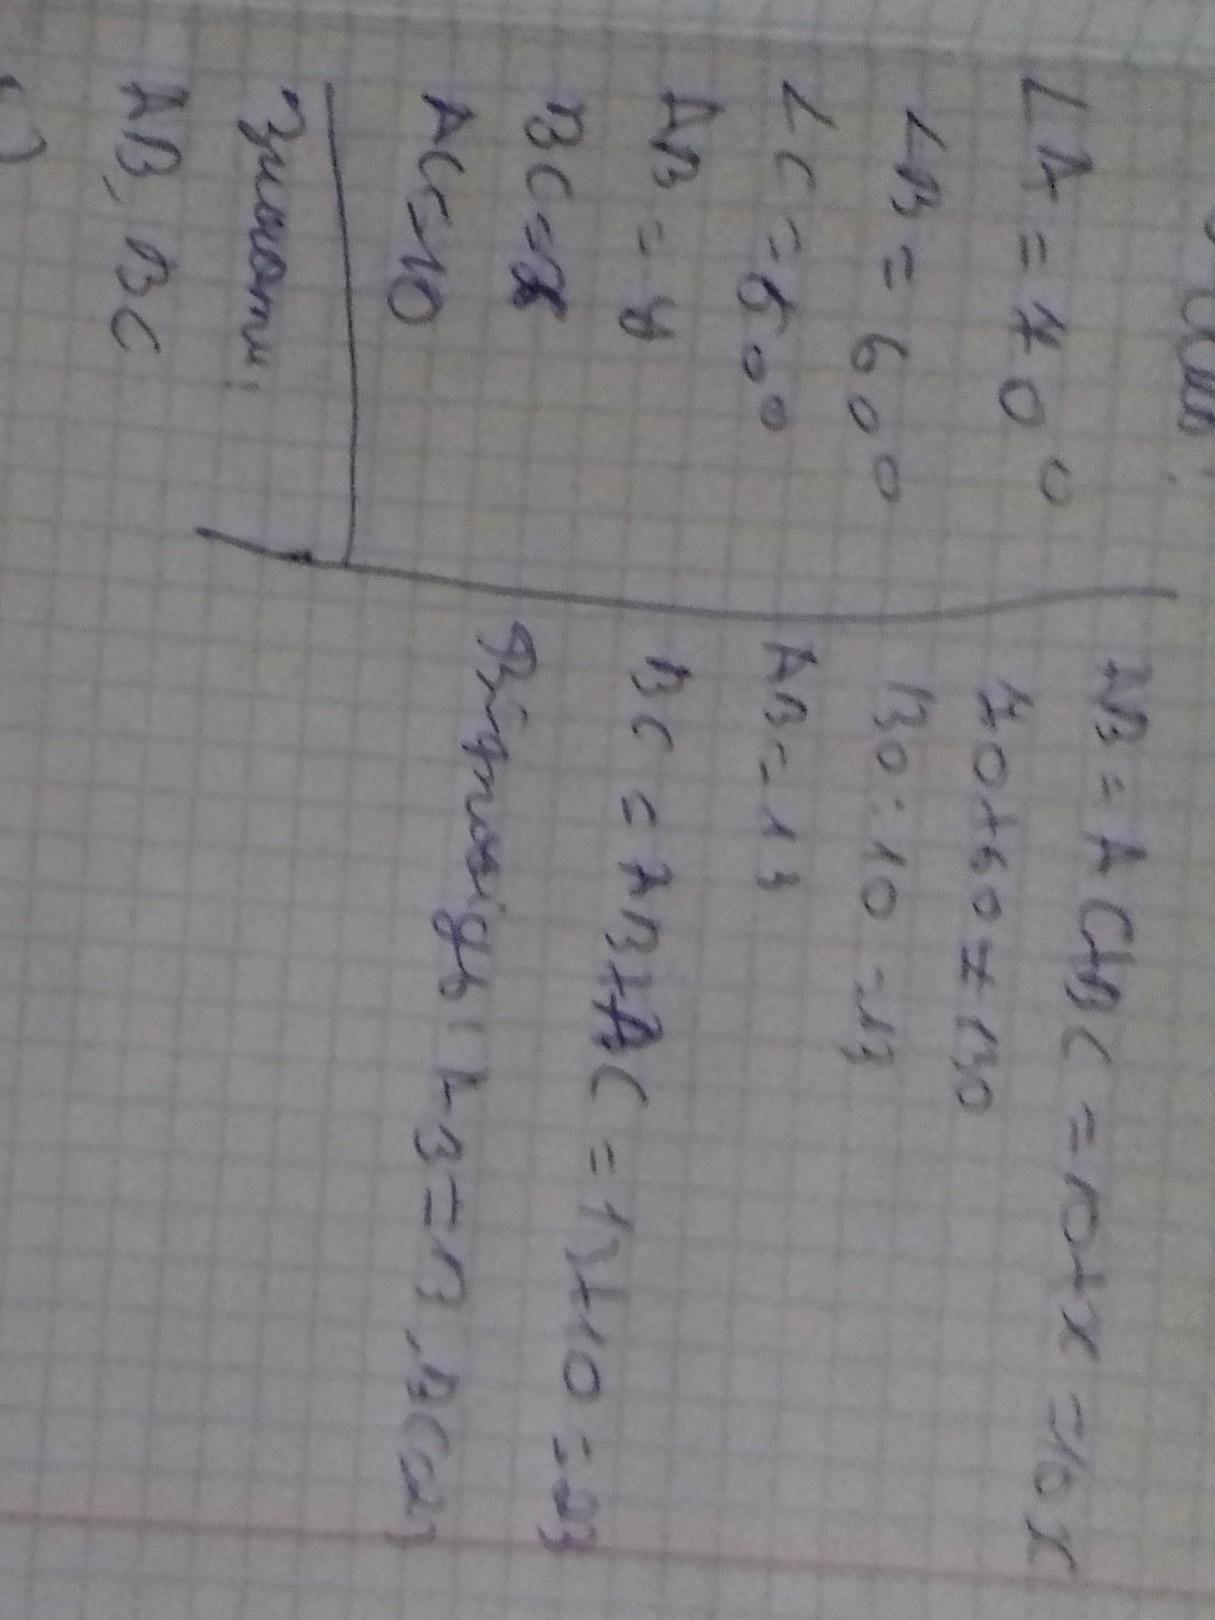 ∠A = 70°
∠B = 60°
∠C = 50°
AB = y
BC = x
AC = 10
Знайти:
AB, BC
AB = AC+BC = 10+x = 10x
70+60 = 130
130:10 = 13
AB = 13
BC = AB+AC = 13+10 = 23
Відповідь: AB = 13, BC=23